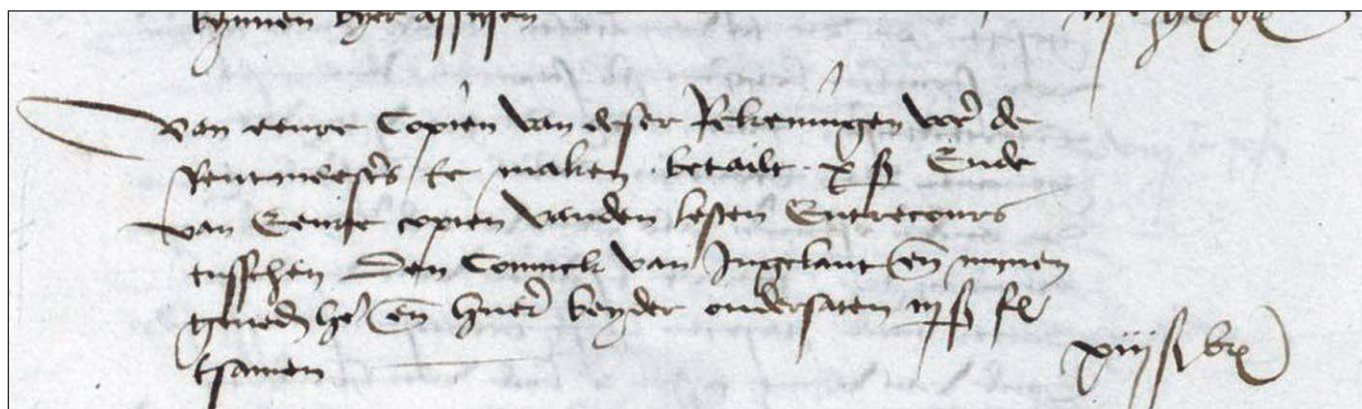 bynnen
van eenre Copien van deser Rekeningen voer de
Rentmeesters te maken betailt x ß Ende
van Eenre copien vanden lesten Entrecours
tusschen Den Coninck van Ingelant en mynen
gened he en huer beyder ondersaten iij ß
tsamen xiij ß br